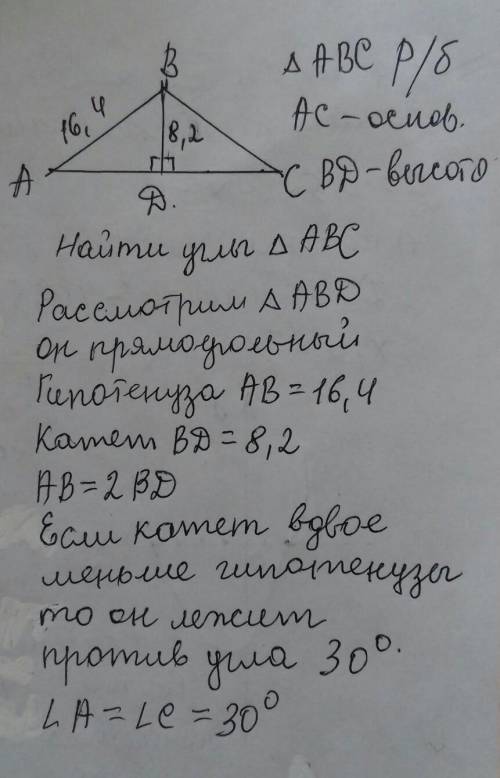 B
△ ABC р/б
16,4
8,2
AC – основ.
A
C
BD – высота
D.
Найти углы △ ABC
Рассмотрим △ ABD
он прямоугольный
Гипотенуза AB = 16,4
Катет BD = 8,2
AB = 2 BD
Если катет вдвое
меньше гипотенузы
то он лежит
против угла 30°.
∠A = ∠C = 30°